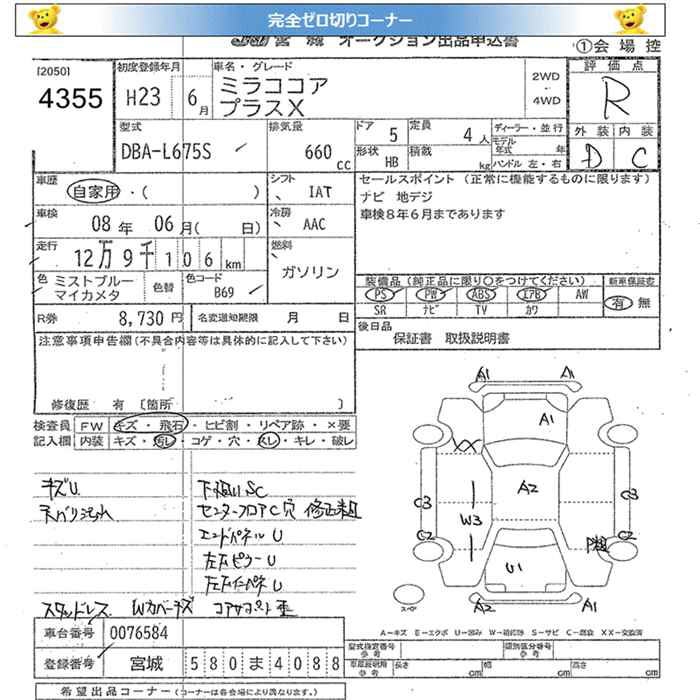 完全ゼロ切りコーナー
JU 宮城 オークション出品申込書 ①会場控
[2050]
4355
初度登録年月
H23 6月
車名・グレード
ミラココア
プラスX
2WD
4WD
評価点
R
外装 内装
D C
型式
DBA-L675S
排気量
660 cc
ドア 5
定員 4人
形状 HB
積載 kg
ディーラー・並行
モデル年式 年
ハンドル 左・右
車歴
自家用・( )
シフト
IAT
車検
08年 06月( 日)
冷房
AAC
走行
12万9千106km
燃料
ガソリン
色
ミストブルー
マイカメタ
色替
色コード
B69
R券 8,730円
名変通知期限 月 日
セールスポイント(正常に機能するものに限ります)
ナビ 地デジ
車検8年6月まであります
装備品(純正品に限り〇をつけてください)
PS PW ABS エアB AW
SR ナビ TV カワ
新車保証書
有 無
後日品
保証書 取扱説明書
注意事項申告欄(不具合内容等は具体的に記入して下さい)
修復歴 有 〔箇所 〕
検査員記入欄
FW キズ・飛石・ヒビ割・リペア跡・×要
内装 キズ・汚レ・コゲ・穴・スレ・キレ・破レ
キズU
天バリ汚れ
下廻りSC
センターフロアC穴 修正未組
エンドパネルU
左右ピラーU
スタッドレス Wカバーキズ コアサポート歪
A1 A1
A1
XX
A2
W3
C3 C3
C2 C2
U1
A2 A1
スペア
A-キズ E-エクボ U-凹み W-補修跡 S-サビ C-腐食 XX-交換済
車台番号 0076584
登録番号 宮城 580ま4088
型式指定番号 参考
類別区分番号 参考
車庫証明用 参考
長さ cm 幅 cm 高さ cm
希望出品コーナー(コーナーは各会場により異なります。)